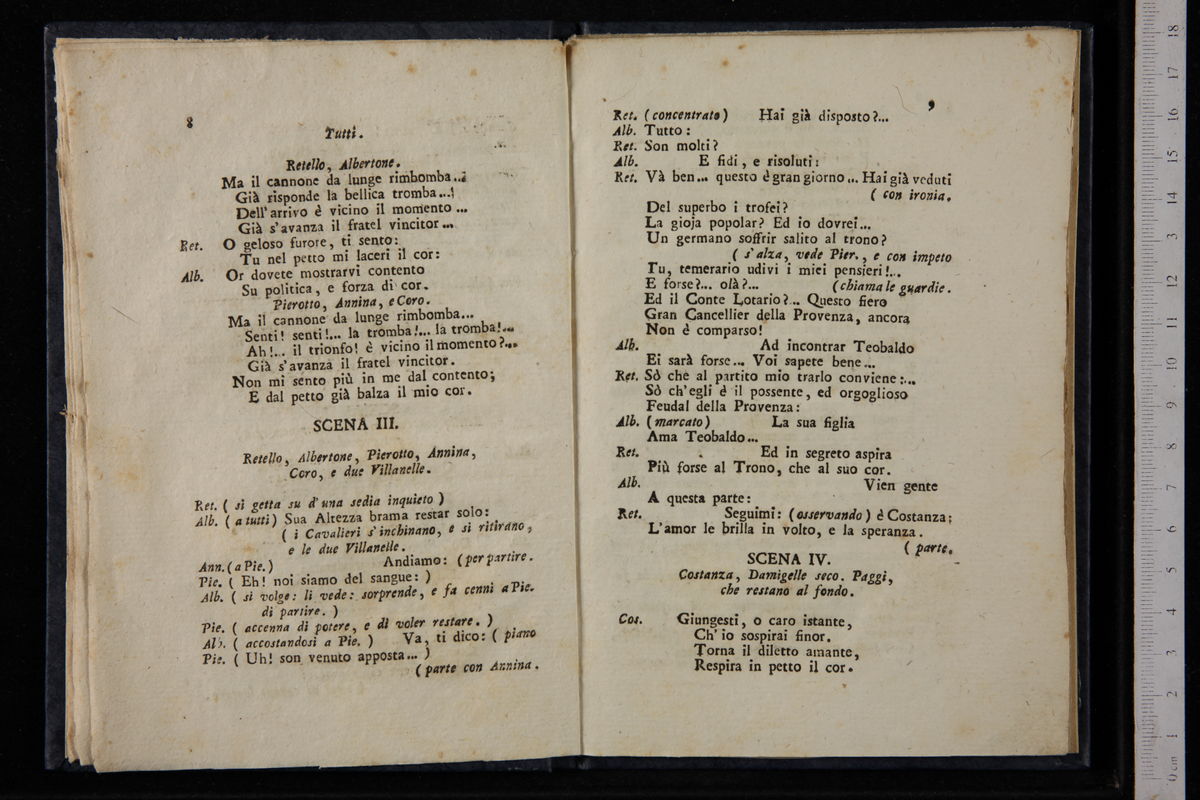 8
Tutti.
Retello, Albertone.
Ma il cannone da lunge rimbomba...
Già risponde la bellica tromba...!
Dell'arrivo è vicino il momento ...
Già s'avanza il fratel vincitor ...
Ret. O geloso furore, ti sento:
Tu nel petto mi laceri il cor:
Alb. Or dovete mostrarvi contento
Su politica, e forza di cor.
Pierotto, Annina, e Coro.
Ma il cannone da lunge rimbomba...
Senti! senti!... la tromba!... la tromba!...
Ah!... il trionfo! è vicino il momento?...
Già s'avanza il fratel vincitor.
Non mi sento più in me dal contento;
E dal petto già balza il mio cor.
SCENA III.
Retello, Albertone, Pierotto, Annina,
Coro, e due Villanelle.
Ret. ( si getta su d'una sedia inquieto )
Alb. ( a tutti ) Sua Altezza brama restar solo:
( i Cavalieri s'inchinano, e si ritirano,
e le due Villanelle.
Ann. ( a Pie. ) Andiamo: ( per partire.
Pie. ( Eh! noi siamo del sangue: )
Alb. ( si volge: li vede: sorprende, e fa cenni a Pie.
di partire. )
Pie. ( accenna di potere, e di voler restare. )
Alb. ( accostandosi a Pie. ) Va, ti dico: ( piano
Pie. ( Uh! son venuto apposta... )
( parte con Annina.
9
Ret. ( concentrato ) Hai già disposto?...
Alb. Tutto:
Ret. Son molti?
Alb. E fidi, e risoluti:
Ret. Và ben... questo è gran giorno... Hai già veduti
( con ironia.
Del superbo i trofei?
La gioja popolar? Ed io dovrei...
Un germano soffrir salito al trono?
( s'alza, vede Pier., e con impeto
Tu, temerario udivi i miei pensieri!...
E forse?... olà?... ( chiama le guardie.
Ed il Conte Lotario?... Questo fiero
Gran Cancellier della Provenza, ancora
Non è comparso!
Alb. Ad incontrar Teobaldo
Ei sarà forse... Voi sapete bene...
Ret. Sò che al partito mio trarlo conviene:...
Sò ch'egli è il possente, ed orgoglioso
Feudal della Provenza:
Alb. ( marcato ) La sua figlia
Ama Teobaldo...
Ret. Ed in segreto aspira
Più forse al Trono, che al suo cor.
Alb. Vien gente
A questa parte:
Ret. Seguimi: ( osservando ) è Costanza;
L'amor le brilla in volto, e la speranza.
( parte.
SCENA IV.
Costanza, Damigelle seco. Paggi,
che restano al fondo.
Cos. Giungesti, o caro istante,
Ch'io sospirai finor.
Torna il diletto amante,
Respira in petto il cor.
0 cm 1 2 3 4 5 6 7 8 9 10 11 12 13 14 15 16 17 18